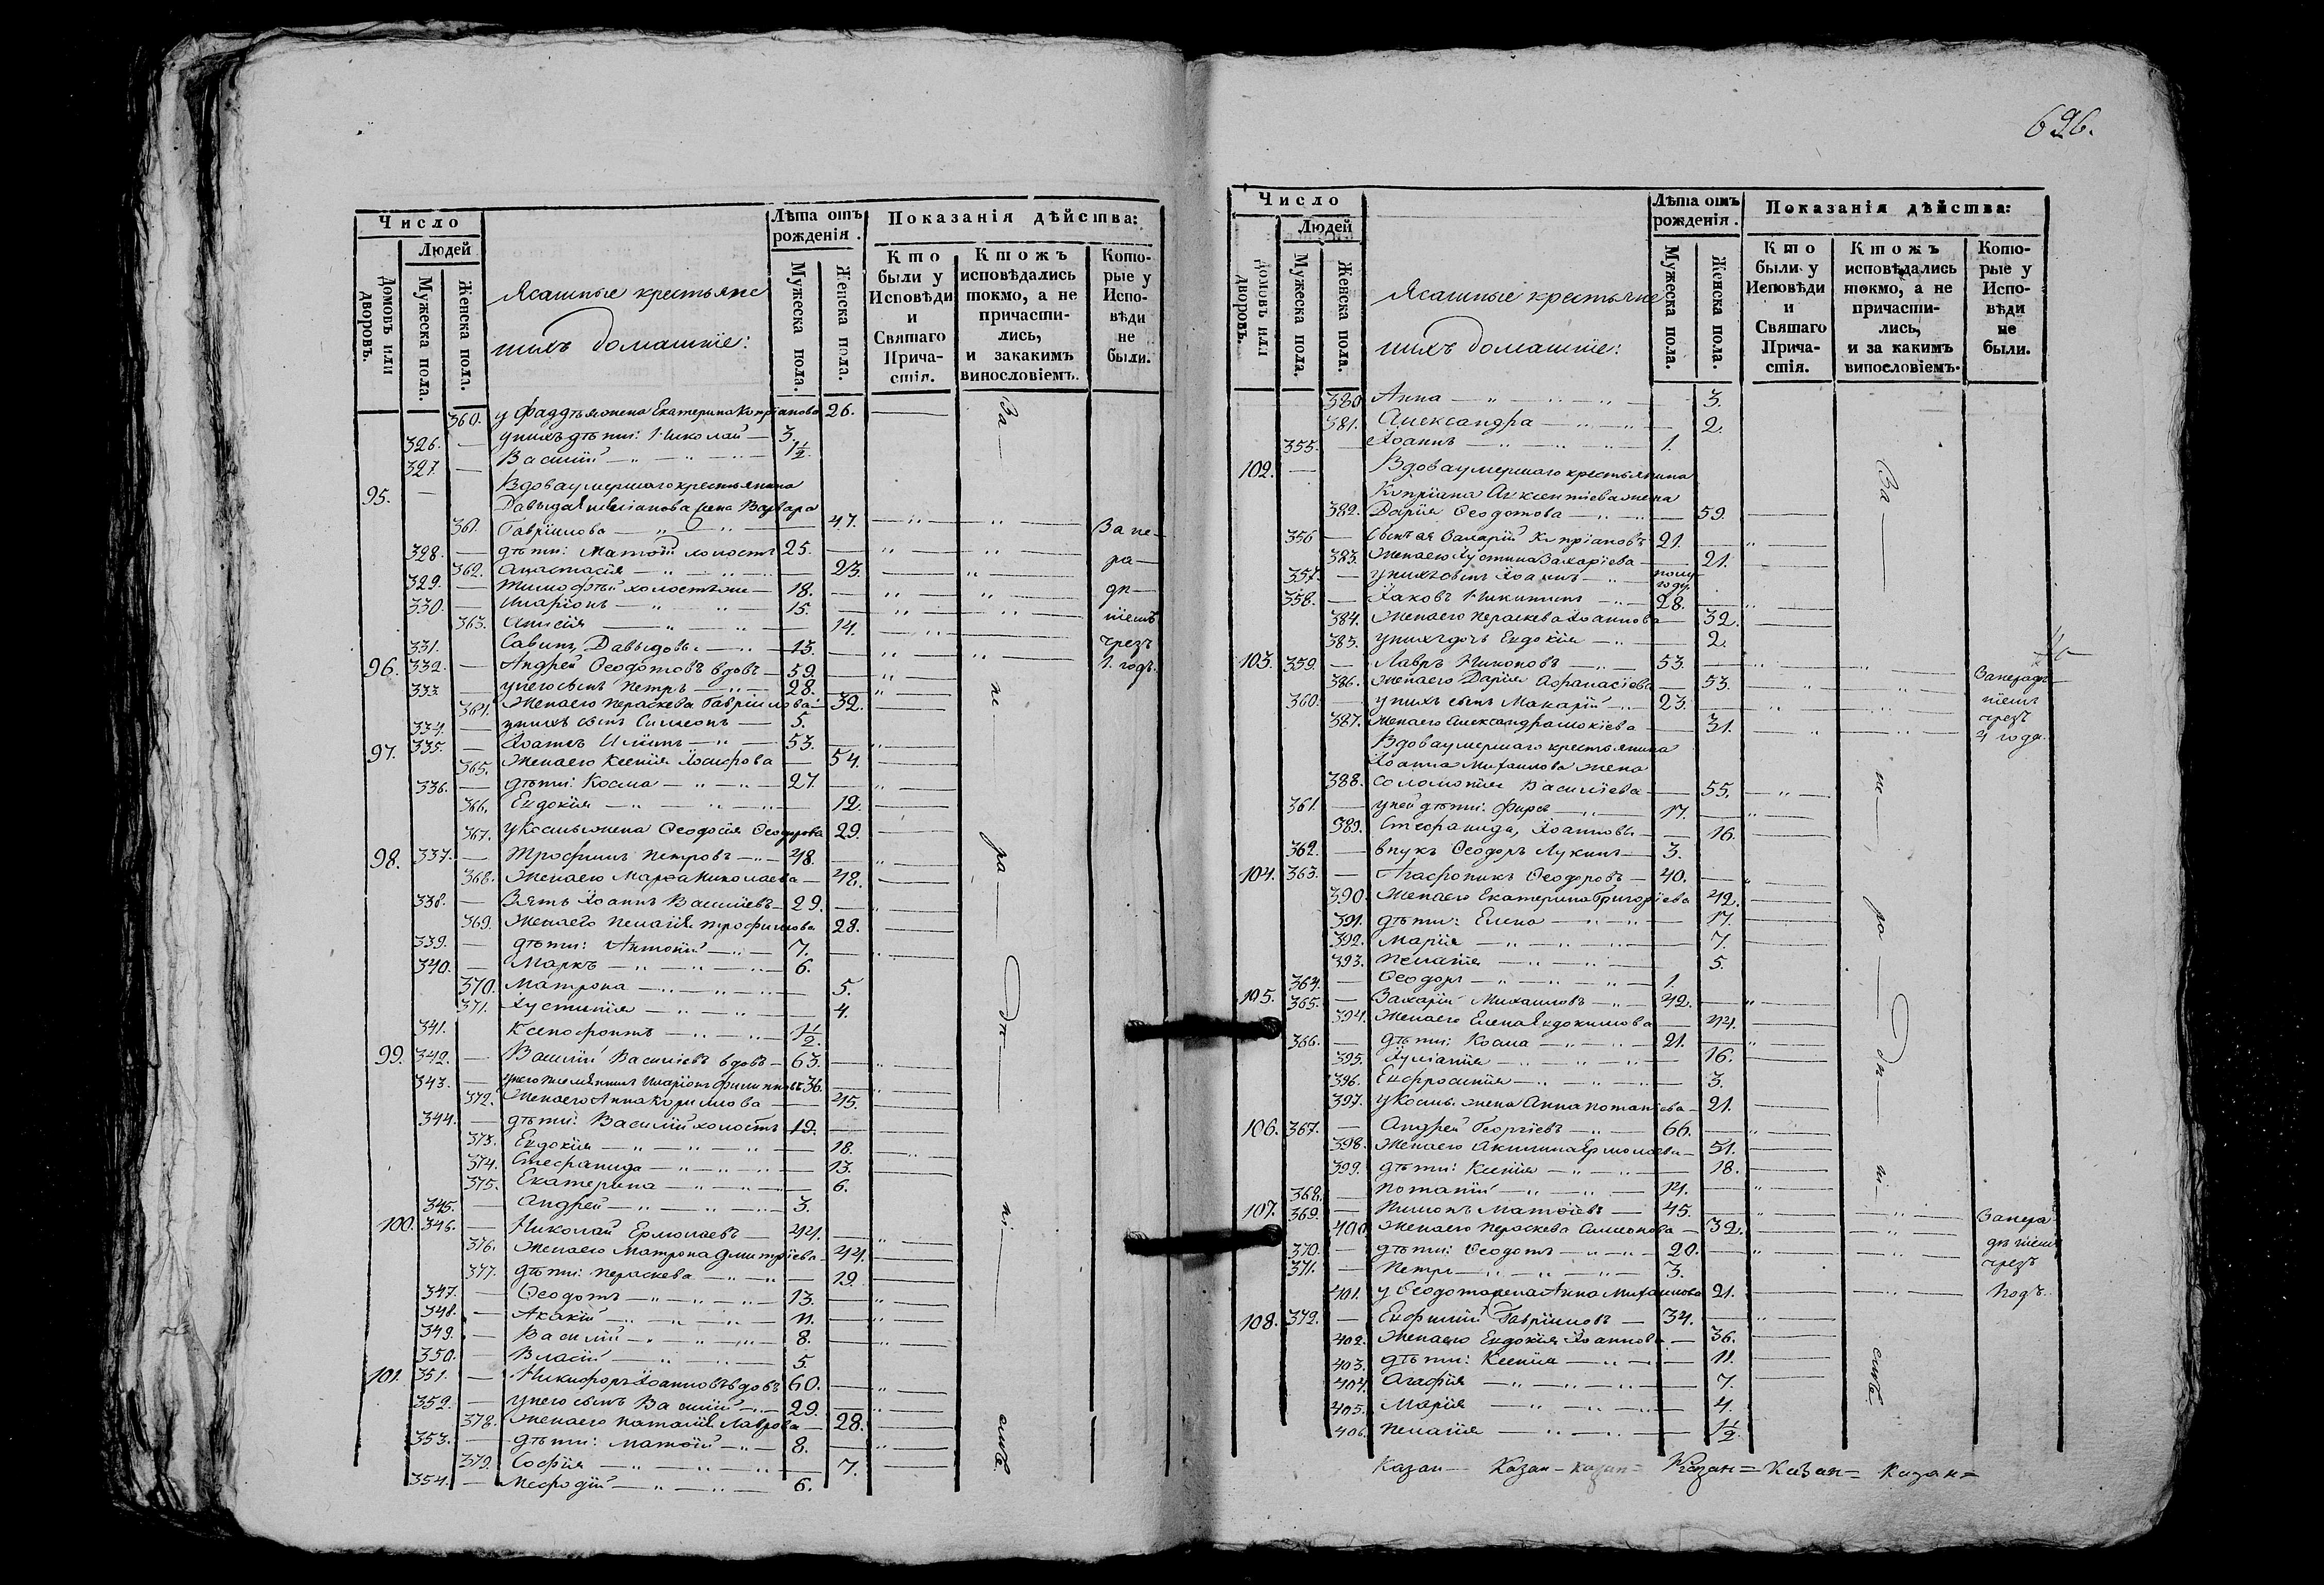 Число
Людей
Домовъ или дворовъ.
Мужеска пола.
Женска пола.
Ясашные крестьяне
иихъ домашніе:
Лѣта отъ рожденія.
Мужеска пола.
Женска пола.
Показанія дѣйства:
Кто были у Исповѣди и Святаго Прича-стія.
Ктожъ исповѣдались токмо, а не причасти-лись, и закакимъ винословіемъ.
Кото-рые у Испо-вѣди не были.
360. у Фаддѣя жена Екатерина Кипріанова 26.
326. — у нихъ дѣти: Николай — 3.
327. — Василій — 1 1/2.
95. — Вдова умершаго крестьянина
Давыда Емеліанова жена Варвара
361. Гавріилова — 47.
328. — дѣти: Матѳій холостъ 25.
362. Анастасія — 23.
329. — Тимоѳей холостъ же — 18.
330. — Иларіонъ — 15.
363. Анисія — 14.
331. Савинъ, Давыдовы — 13.
96. 332. — Андрей Ѳеодотовъ вдовъ — 59.
333 — у него сынъ Петръ — 28.
364. Жена его Параскева Гавріилова — 32.
334. — у нихъ сынъ Симеонъ — 5.
97. 335. — Іоаннъ Ильинъ — 53.
365. Жена его Ксенія Іосифова — 54.
336. — дѣти: Косма — 27.
366. Евдокія — 12.
367. у Космы жена Ѳеодосія Ѳеодорова 29.
98. 337. — Трофимъ Петровъ — 48.
368. Жена его Марѳа Николаева — 48.
338. — Зять Іоаннъ Василіевъ — 29.
369. Жена его Пелагія Трофимова 28.
339. — дѣти: Антоній — 7.
340. — Маркъ — 6.
370. Матрона — 5.
371. Іустинія — 4.
341. Ксенофонтъ — 1 1/2.
99. 342. — Василій Василіевъ вдовъ — 63.
343. — у него племянникъ Иларіонъ Филиповъ 36.
372. Жена его Анна Кирилова — 45.
344. — дѣти: Василій холостъ — 19.
373. Евдокія — 18.
374. Стефанида — 13.
375. Екатерина — 6.
345. — Андрей — 3.
100. 346. — Николай Ермолаевъ — 44.
376. Жена его Матрона Дмитріева 44.
377. дѣти: Параскева — 19.
347. — Ѳеодотъ — 13.
348. — Акакій — 11.
349. — Василій — 8.
350. — Власій — 5.
101. 351. — Никифоръ Іоанновъ вдовъ 60.
352. — у него сынъ Василій — 29.
378. Жена его Наталія Лаврова — 28.
353. — дѣти: Матѳій — 8.
379. Софія — 7.
354. — Меѳодій — 6.
За — не — ра — дѣ — ні — емъ
За не-
ра-
дѣ-
ніемъ
чрезъ
1. годъ.
696.
Число
Людей
Домовъ или дворовъ.
Мужеска пола.
Женска пола.
Ясашные крестьяне
иихъ домашніе:
Лѣта отъ рожденія.
Мужеска пола.
Женска пола.
Показанія дѣйства:
Кто были у Исповѣди и Святаго Прича-стія.
Ктожъ исповѣдались токмо, а не причасти-лись, и за какимъ винословіемъ.
Кото-рые у Испо-вѣди не были.
380 Анна — 3.
381. Александра — 2.
355. — Іоаннъ — 1.
102. — Вдова умершаго крестьянина
Кипріана Авксентіева жена
382. Дарія Ѳеодотова — 59.
356 — Сынъ ея Захарій Кипріановъ 21.
383. Жена его Іустина Захаріева — 21.
357. — у нихъ сынъ Іоаннъ — полу-году.
358. — Іаковъ Никитинъ — 28.
384. Жена его Параскева Іоаннова — 32.
385. у нихъ дочь Евдокія — 2.
103. 359. — Лавръ Никоновъ — 53.
386. Жена его Дарія Аѳанасіева — 53.
360. у нихъ сынъ Макарій — 23.
387. Жена его Александра Мокіева — 31.
Вдова умершаго крестьянина
Іоанна Михаилова жена
388. Соломонія Василіева — 55.
361. — у ней дѣти: Фирсъ — 17.
389. Стефанида, Іоанновы — 16.
362. — внукъ Ѳеодоръ Лукинъ — 3.
104. 363. — Агафоникъ Ѳеодоровъ — 40.
390. Жена его Екатерина Григоріева 42.
391. дѣти: Елена — 17.
392. Марія — 7.
393. Пелагія — 5.
364. — Ѳеодоръ — 1.
105. 365. — Захарій Михаиловъ — 42.
394. Жена его Елена Евдокимова — 44.
366. — дѣти: Косма — 21.
395. Іуліанія — 16.
396. Евфросинія — 3.
397. у Космы жена Анна Потапіева — 21.
106. 367. — Андрей Георгіевъ — 66.
398. Жена его Акилина Ермолаева — 51.
399. дѣти: Ксенія — 18.
368. — Потапій — 14.
107. 369. — Пименъ Матѳіевъ — 45.
400 Жена его Параскева Симеонова — 32.
370. — дѣти: Ѳеодотъ — 20.
371. — Петръ — 3.
401. у Ѳеодота жена Анна Михаилова 21.
108. 372. — Евфимій Гавріиловъ — 34.
402. Жена его Евдокія Іоаннова — 36.
403. дѣти: Ксенія — 11.
404. Агафія — 7.
405. Марія — 4.
406. Пелагія — 1 1/2.
За — не — ра — дѣ — ні — емъ
За нерадѣ-
ніемъ
чрезъ
4 года.
За нера-
дѣніемъ
чрезъ
1 годъ.
Казан — Казан — Казан = Казан = Казан = Казан =